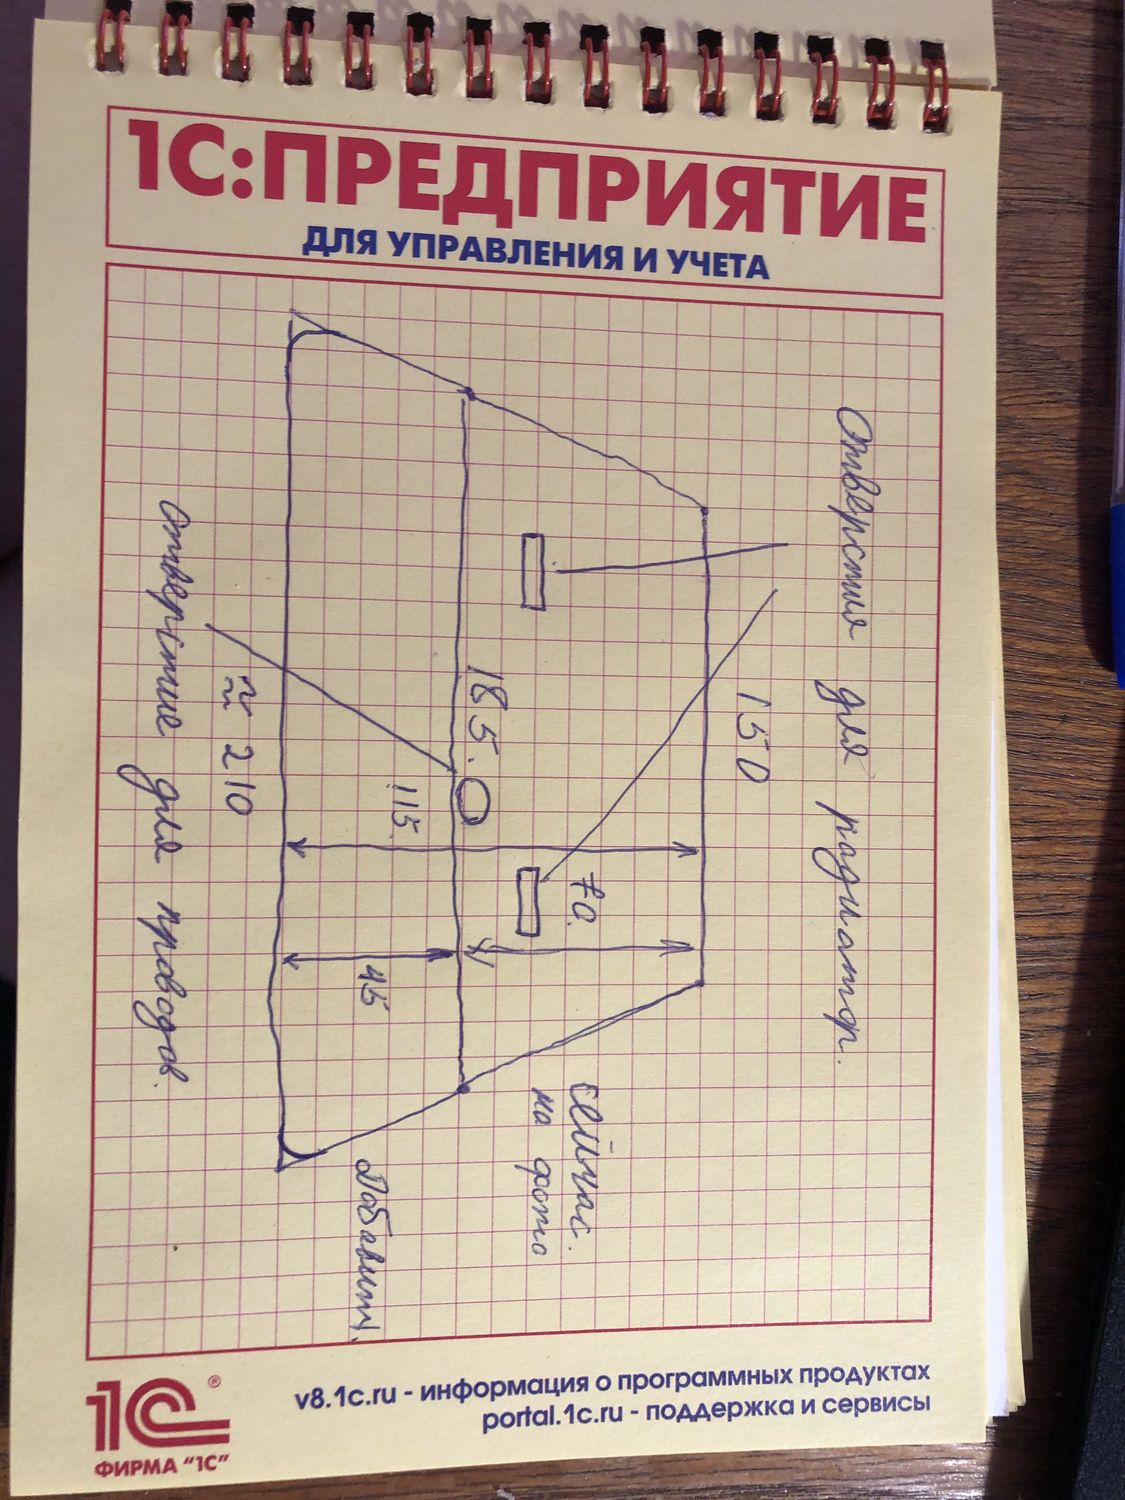 1С:ПРЕДПРИЯТИЕ
ДЛЯ УПРАВЛЕНИЯ И УЧЕТА
Отверстия для радиатор.
150
70.
сейчас.
на фото
185.
115.
45
Добавит.
≈ 210
отверстие для проводов.
1С®
ФИРМА "1С"
v8.1c.ru - информация о программных продуктах
portal.1c.ru - поддержка и сервисы